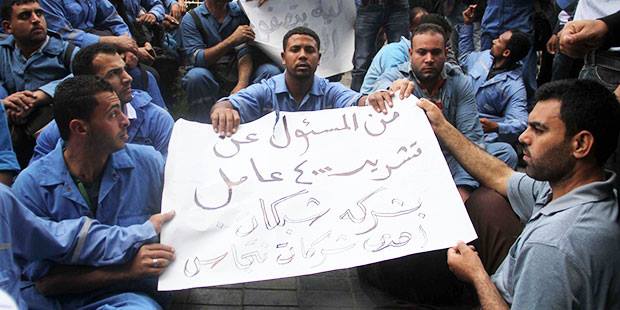 من المسئول عن
تشريد ٤٠٠ عامل
بشركة شبكان
احدى شركات نتجاس